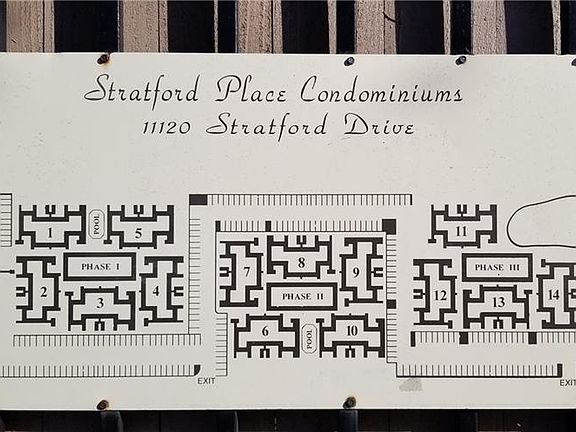 Stratford Place Condominiums
11120 Stratford Drive
1
POOL
5
PHASE I
2
3
4
7
8
9
PHASE II
6
POOL
10
11
PHASE III
12
13
14
EXIT
EXIT